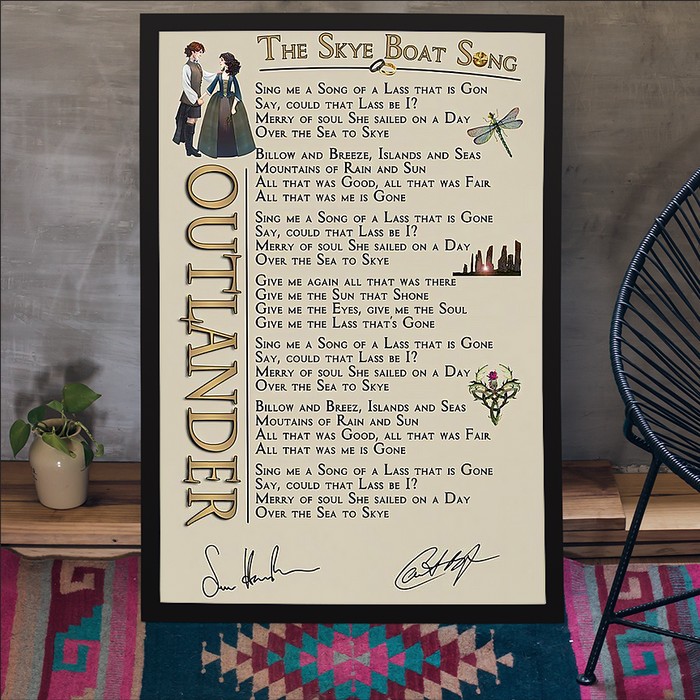 The Skye Boat Song
Sing me a Song of a Lass that is Gon
Say, could that Lass be I?
Merry of soul She sailed on a Day
Over the Sea to Skye
Billow and Breeze, Islands and Seas
Mountains of Rain and Sun
All that was Good, all that was Fair
All that was me is Gone
Sing me a Song of a Lass that is Gone
Say, could that Lass be I?
Merry of soul She sailed on a Day
Over the Sea to Skye
Give me again all that was there
Give me the Sun that Shone
Give me the Eyes, give me the Soul
Give me the Lass that's Gone
Sing me a Song of a Lass that is Gone
Say, could that Lass be I?
Merry of soul She sailed on a Day
Over the Sea to Skye
Billow and Breez, Islands and Seas
Moutains of Rain and Sun
All that was Good, all that was Fair
All that was me is Gone
Sing me a Song of a Lass that is Gone
Say, could that Lass be I?
Merry of soul She sailed on a Day
Over the Sea to Skye
OUTLANDER